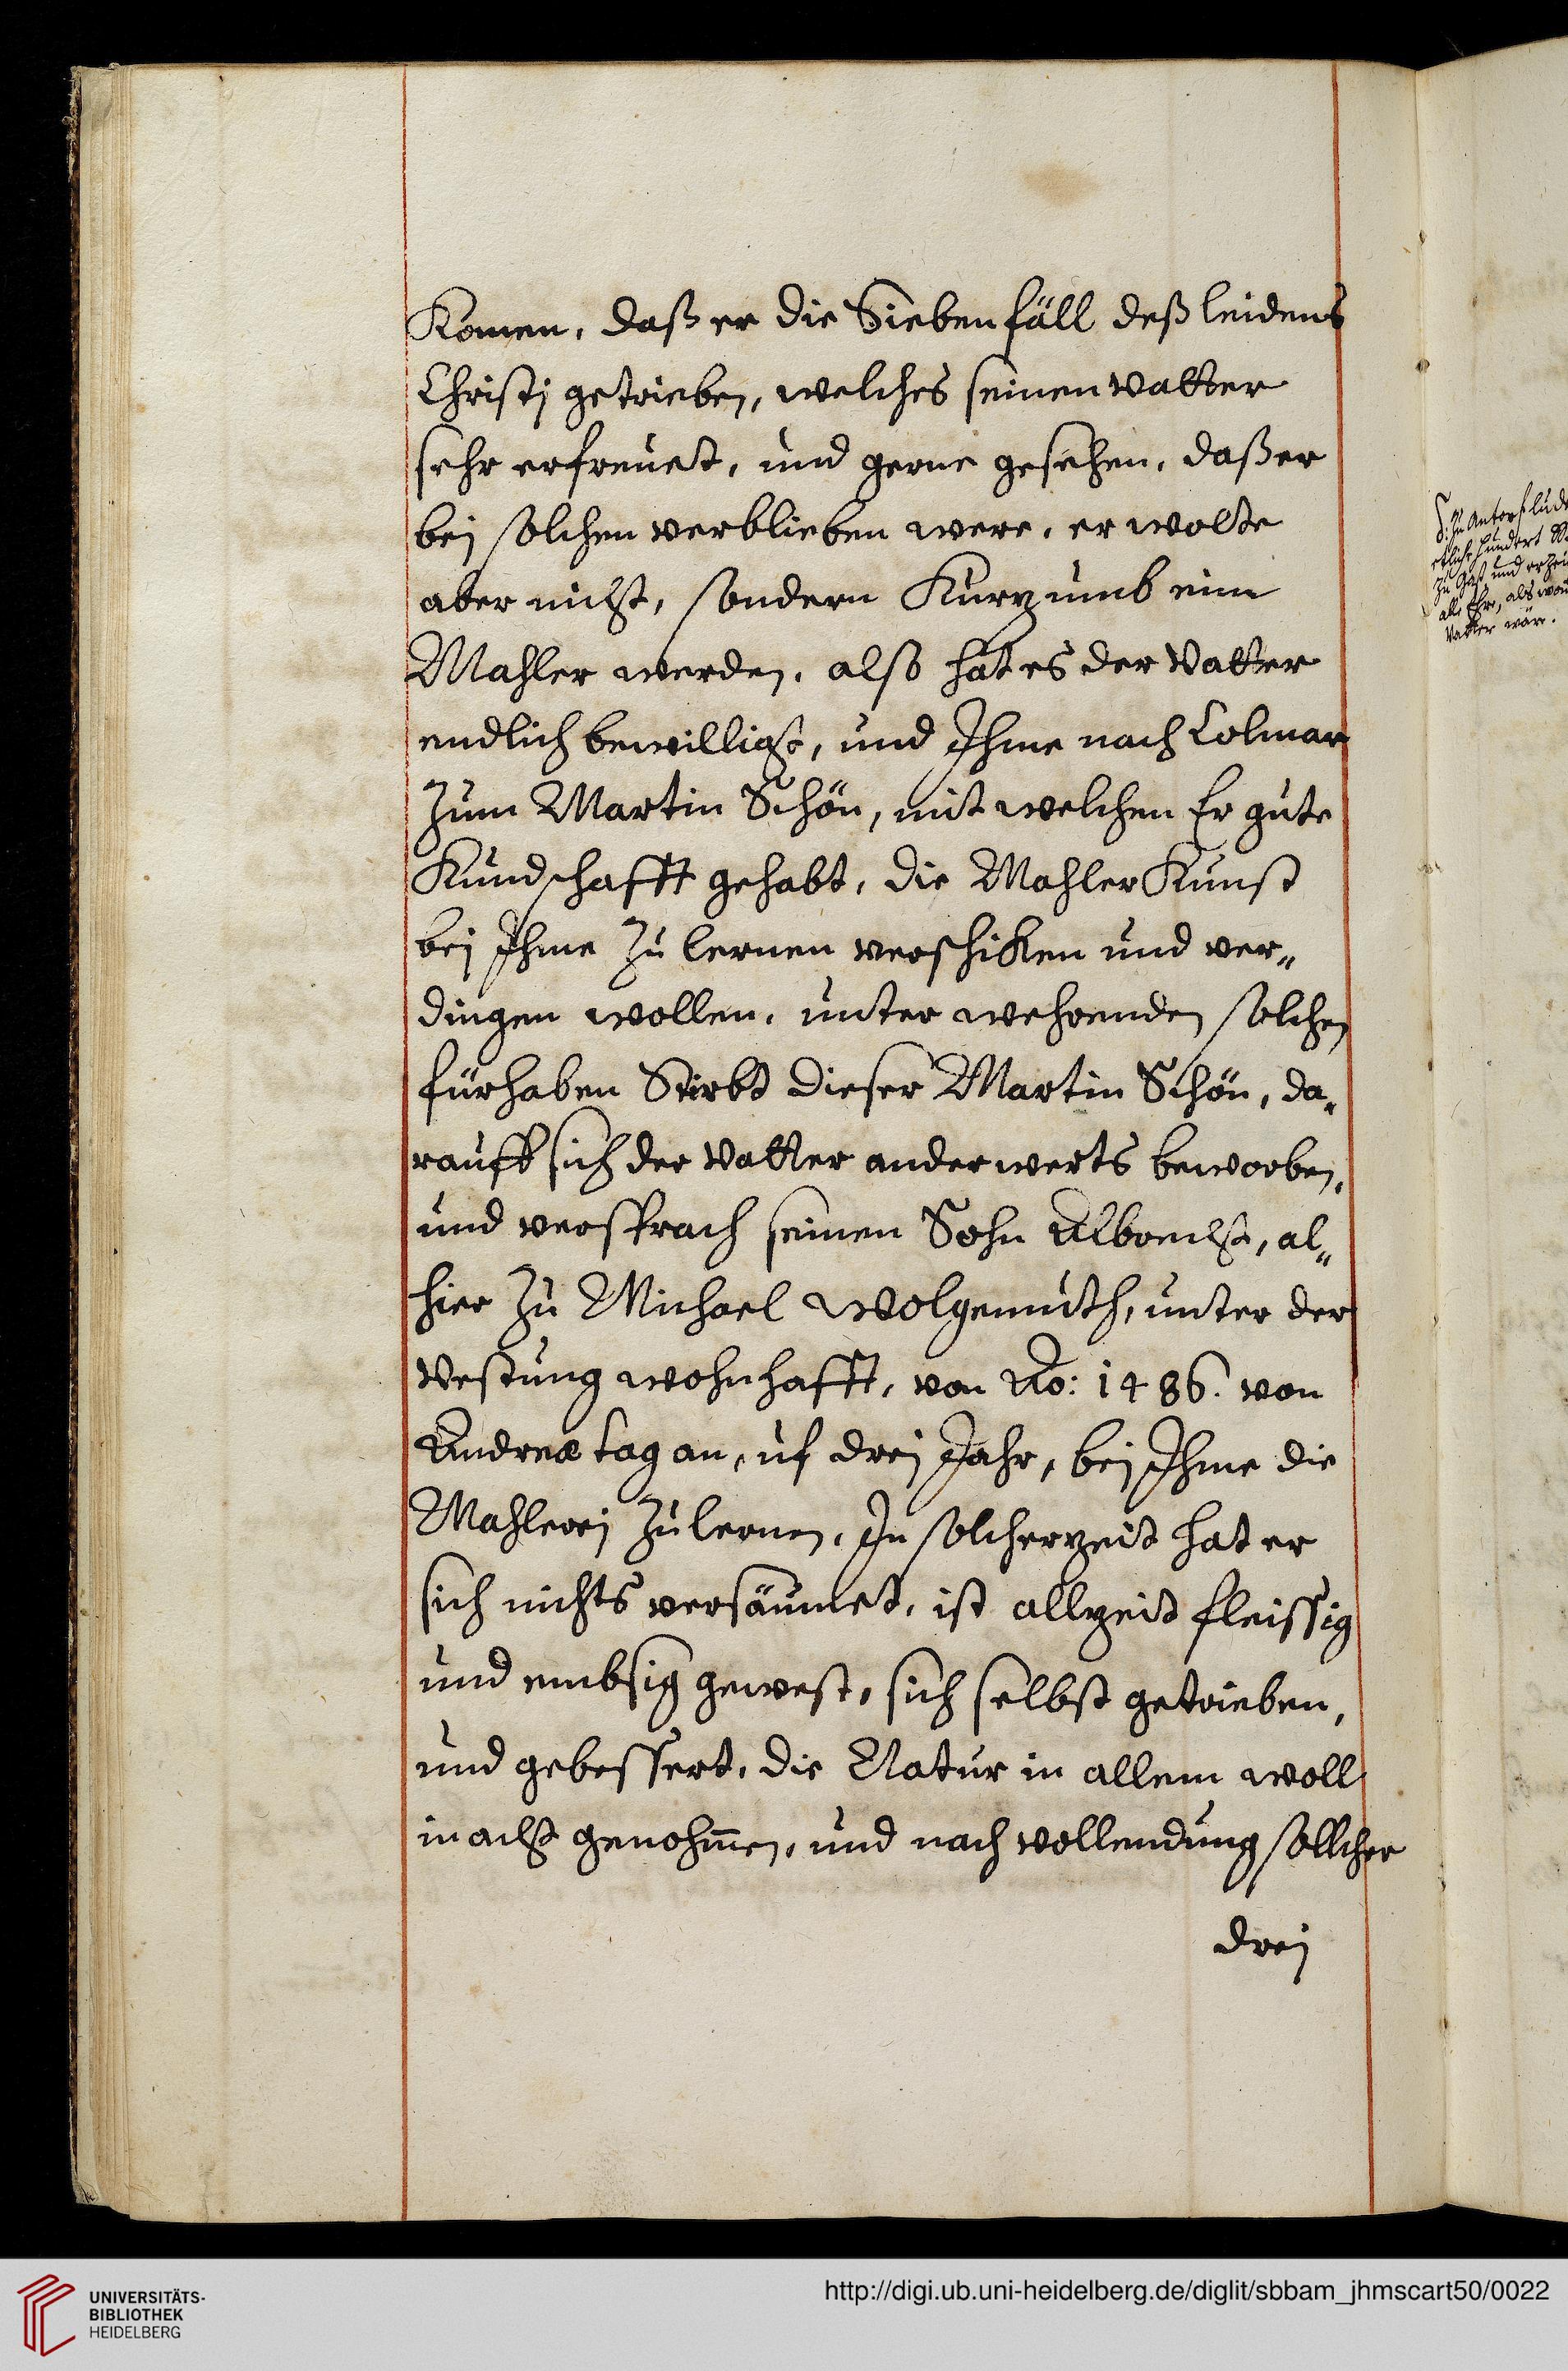 Komen, daß er die Sieben fäll deß leidens
Christj getrieben, welches seinen Vatter
sehr erfreuet, und gerne gesehen, daß er
bei solchen verblieben were, er wolte
aber nicht, sondern Kurz umb ein
Mahler werden, also hat es der Vatter
endlich bewilligt, und Ihme nach Colmar
zum Martin Schön, mit welchen Er gute
Kundschafft gehabt, die Mahler Kunst
bei Ihme zu lernen verschiken und ver„
dingen wollen, unter wehrenden solchen
fürhaben Stirbt dieser Martin Schön, da„
rauff sich der Vatter anderwerts beworben,
und versprach seinen Sohn Albrecht, al„
hier zu Michael Wolgemuth, unter der
Vestung wohnhafft, von Ao: 1486. von
Andreæ tag an, uf drei Jahr, bei Ihme die
Mahlerei zu lernen, In solcher zeit hat er
sich nichts versäumet, ist allzeit fleissig
und embsig gewest, sich selbst getrieben,
und gebessert, die Natur in allem woll
in acht genohm̄en, und nach vollendung sollcher
drei
etliche hundert
zu Gast und
alle Ehr, als
Vatter wäre.
UNIVERSITÄTS-
BIBLIOTHEK
HEIDELBERG
http://digi.ub.uni-heidelberg.de/diglit/sbbam_jhmscart50/0022